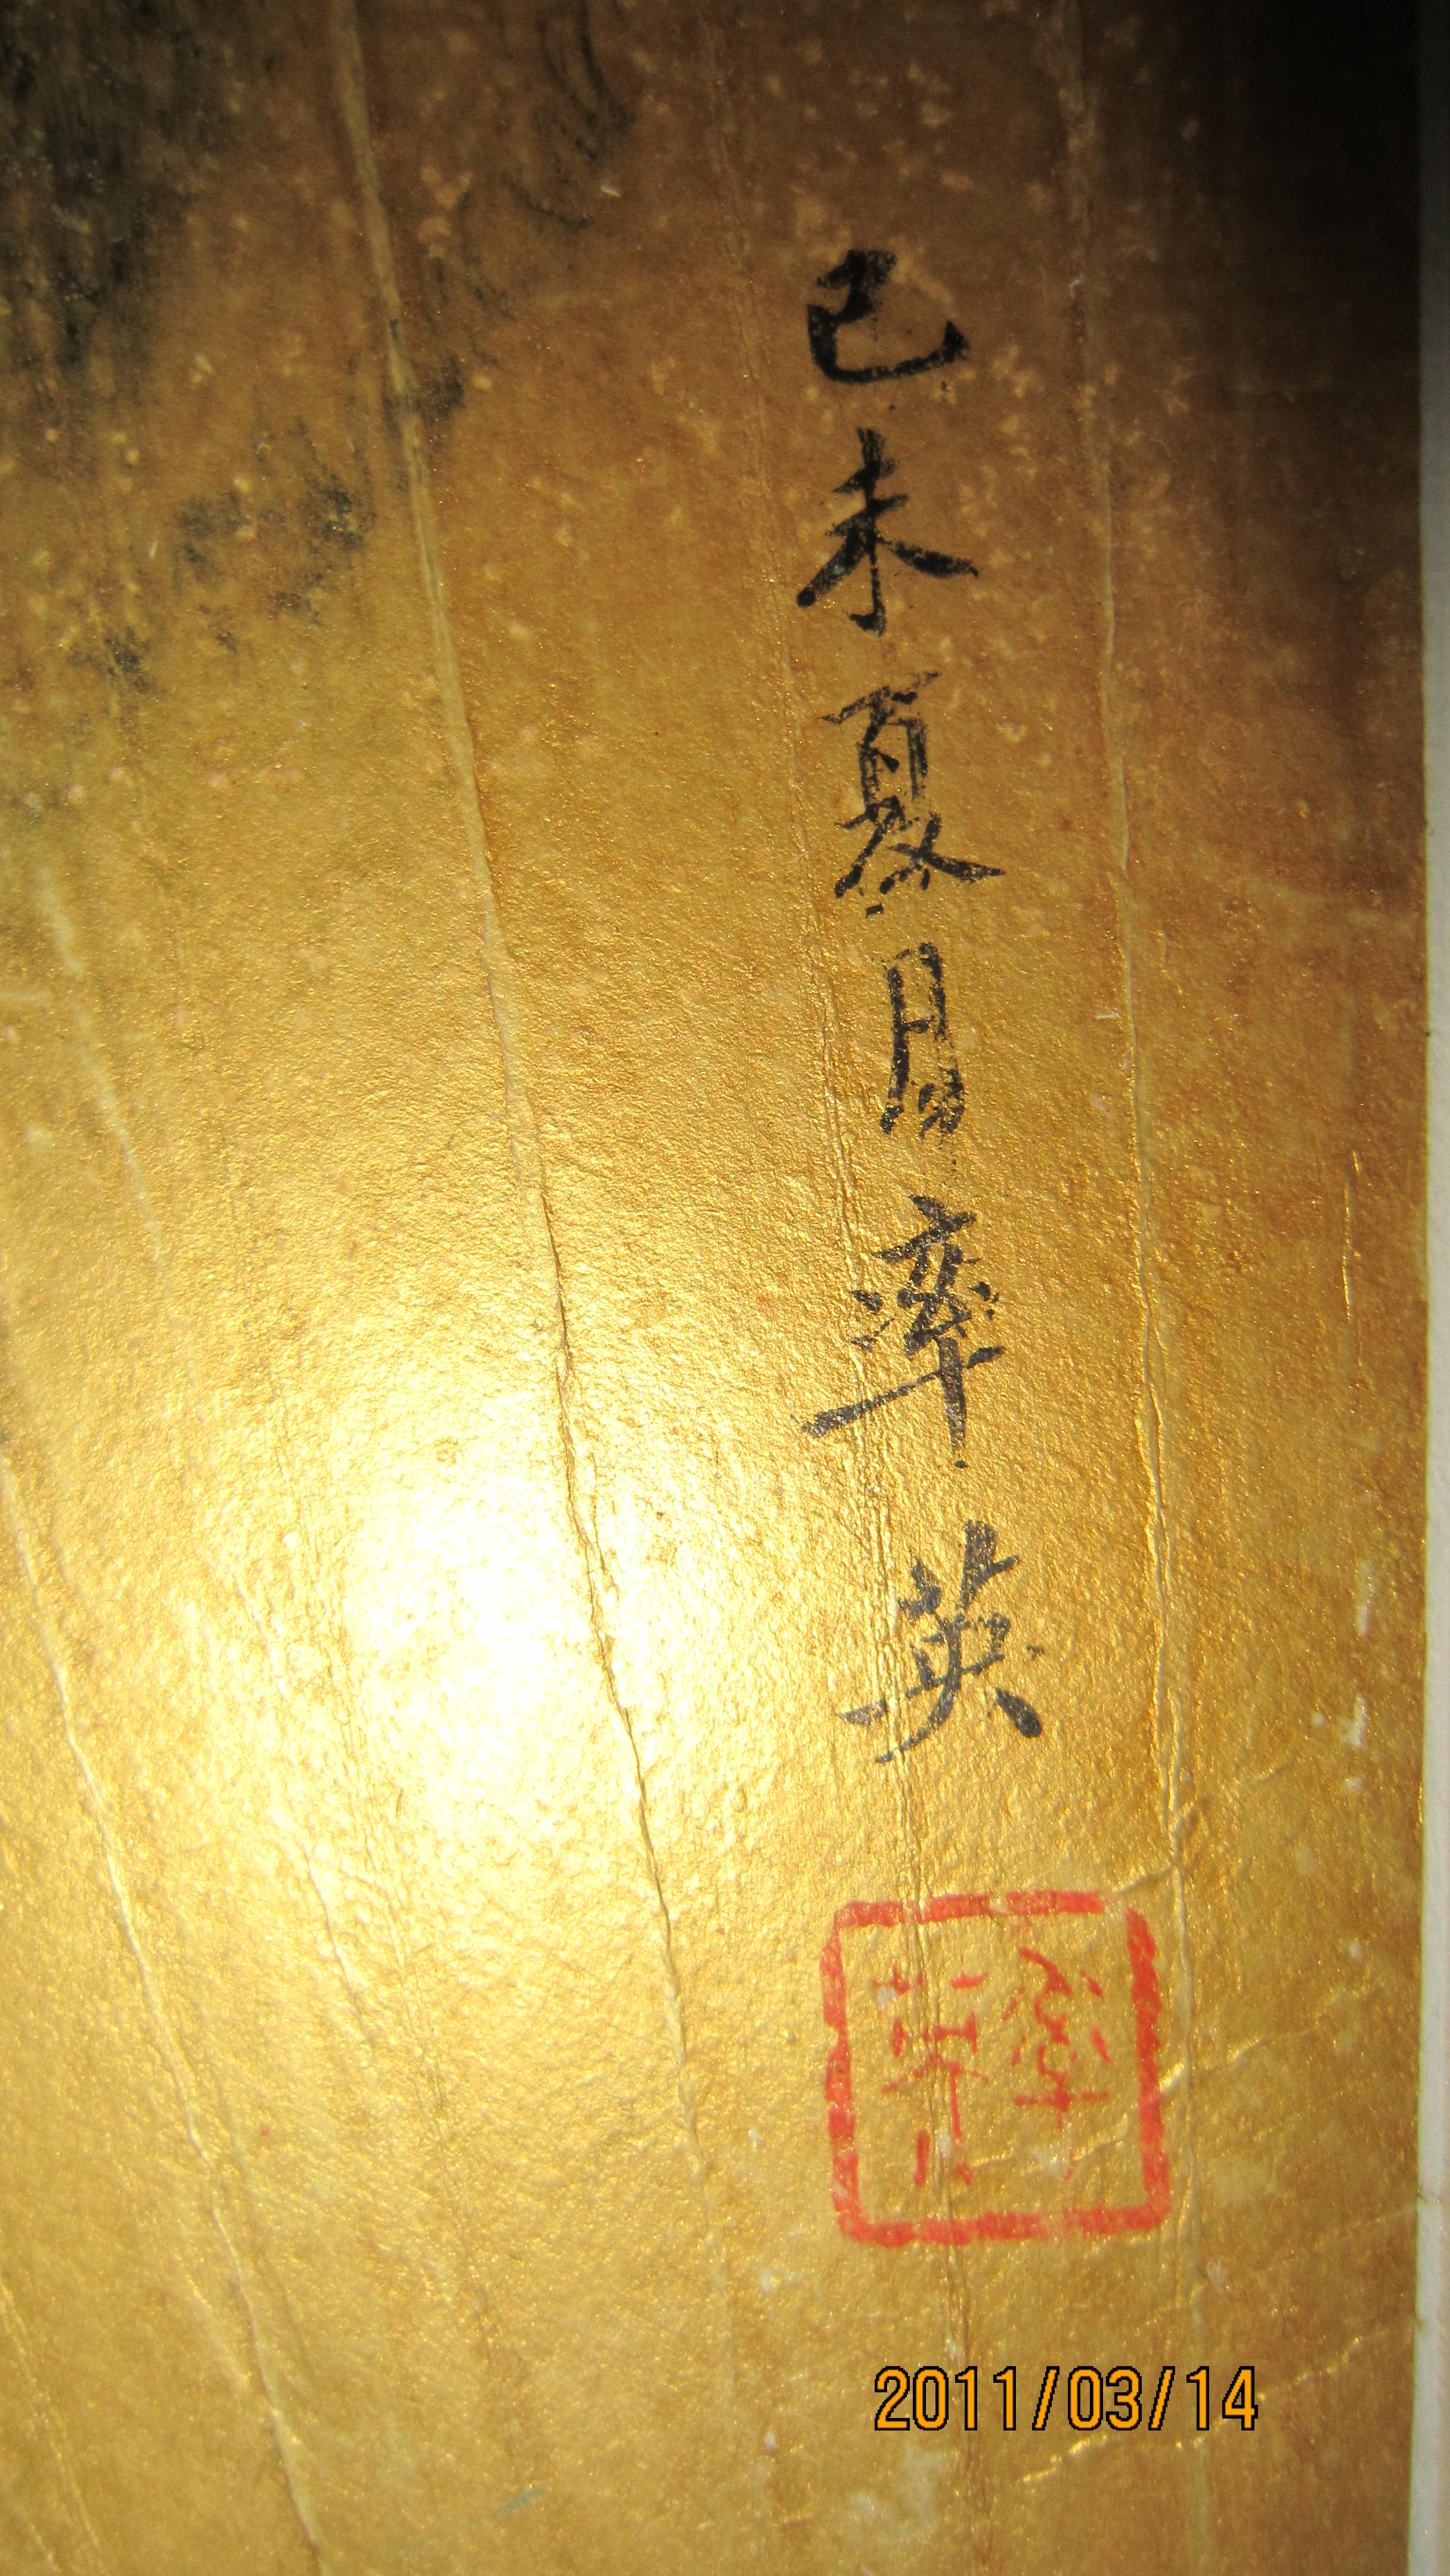 己未夏月率英
率英
2011/03/14